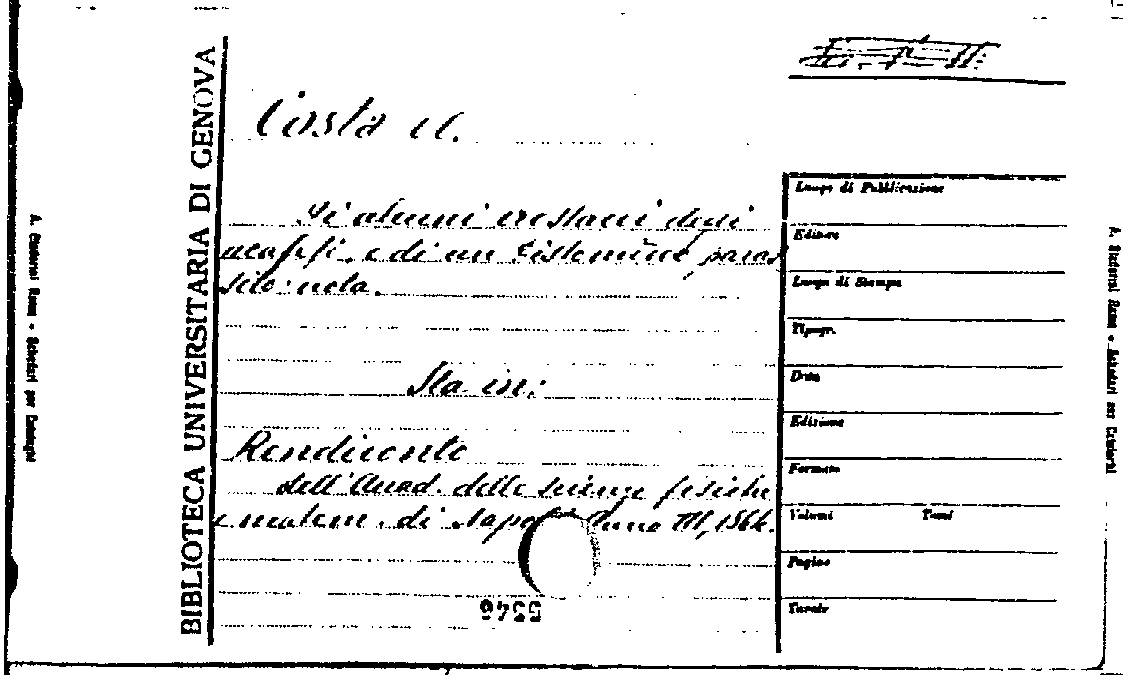 BIBLIOTECA UNIVERSITARIA DI GENOVA
Costa A.
Di alcuni crostacei degli
acalefi, e di un distomideo paras
sito: nota.
Sta in:
Rendiconto
dell'Accad. delle scienze fisiche
e matem. di Napoli Anno III, 1864.
5546
Luogo di Pubblicazione
Editore
Luogo di Stampa
Tipogr.
Data
Edizione
Formato
Volumi Tomi
Pagine
Tavole
A. Staderini Roma - Schedari per Cataloghi
A. Staderini Roma - Schedari per Cataloghi